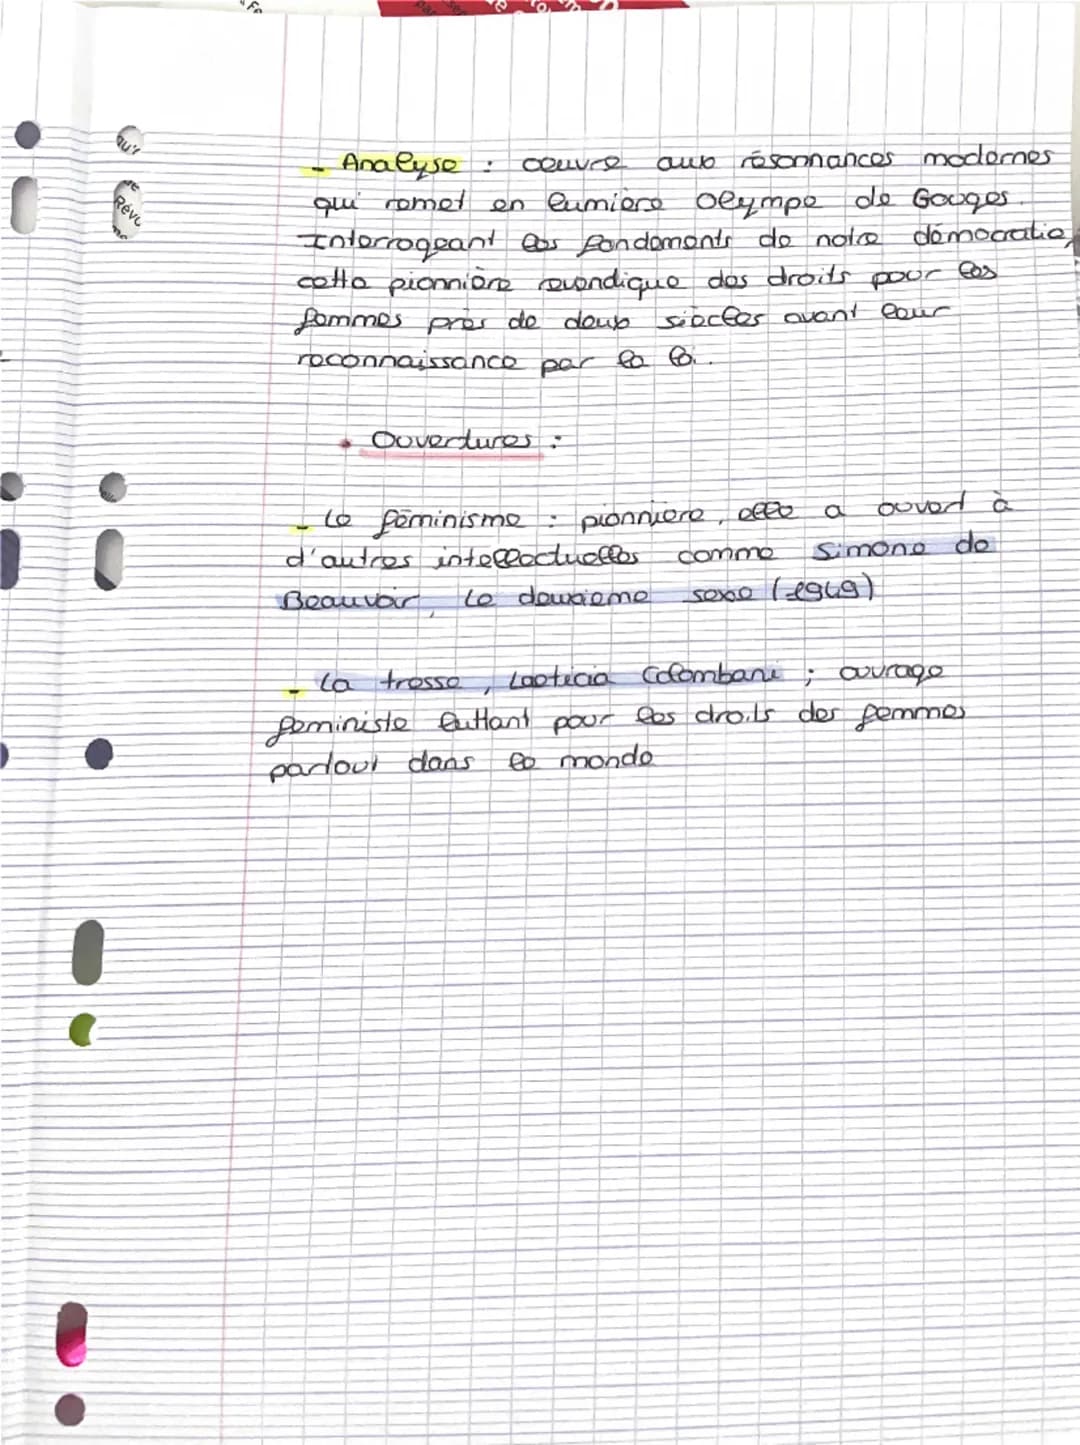 - Analyse : oeuvre aux résonnances modernes
qui remet en lumière Olympe de Gouges.
Interrogeant les fondements de notre démocratie,
cette pionnière revendique des droits pour les
femmes près de deux siècles avant leur
reconnaissance par la loi.
• Ouvertures :
- Le féminisme : pionnière, elle a ouvert à
d'autres intellectuelles comme Simone de
Beauvoir, Le deuxième sexe (1949)
- La tresse, Laeticia Colombani ; ouvrage
féministe luttant pour les droits des femmes
partout dans le monde